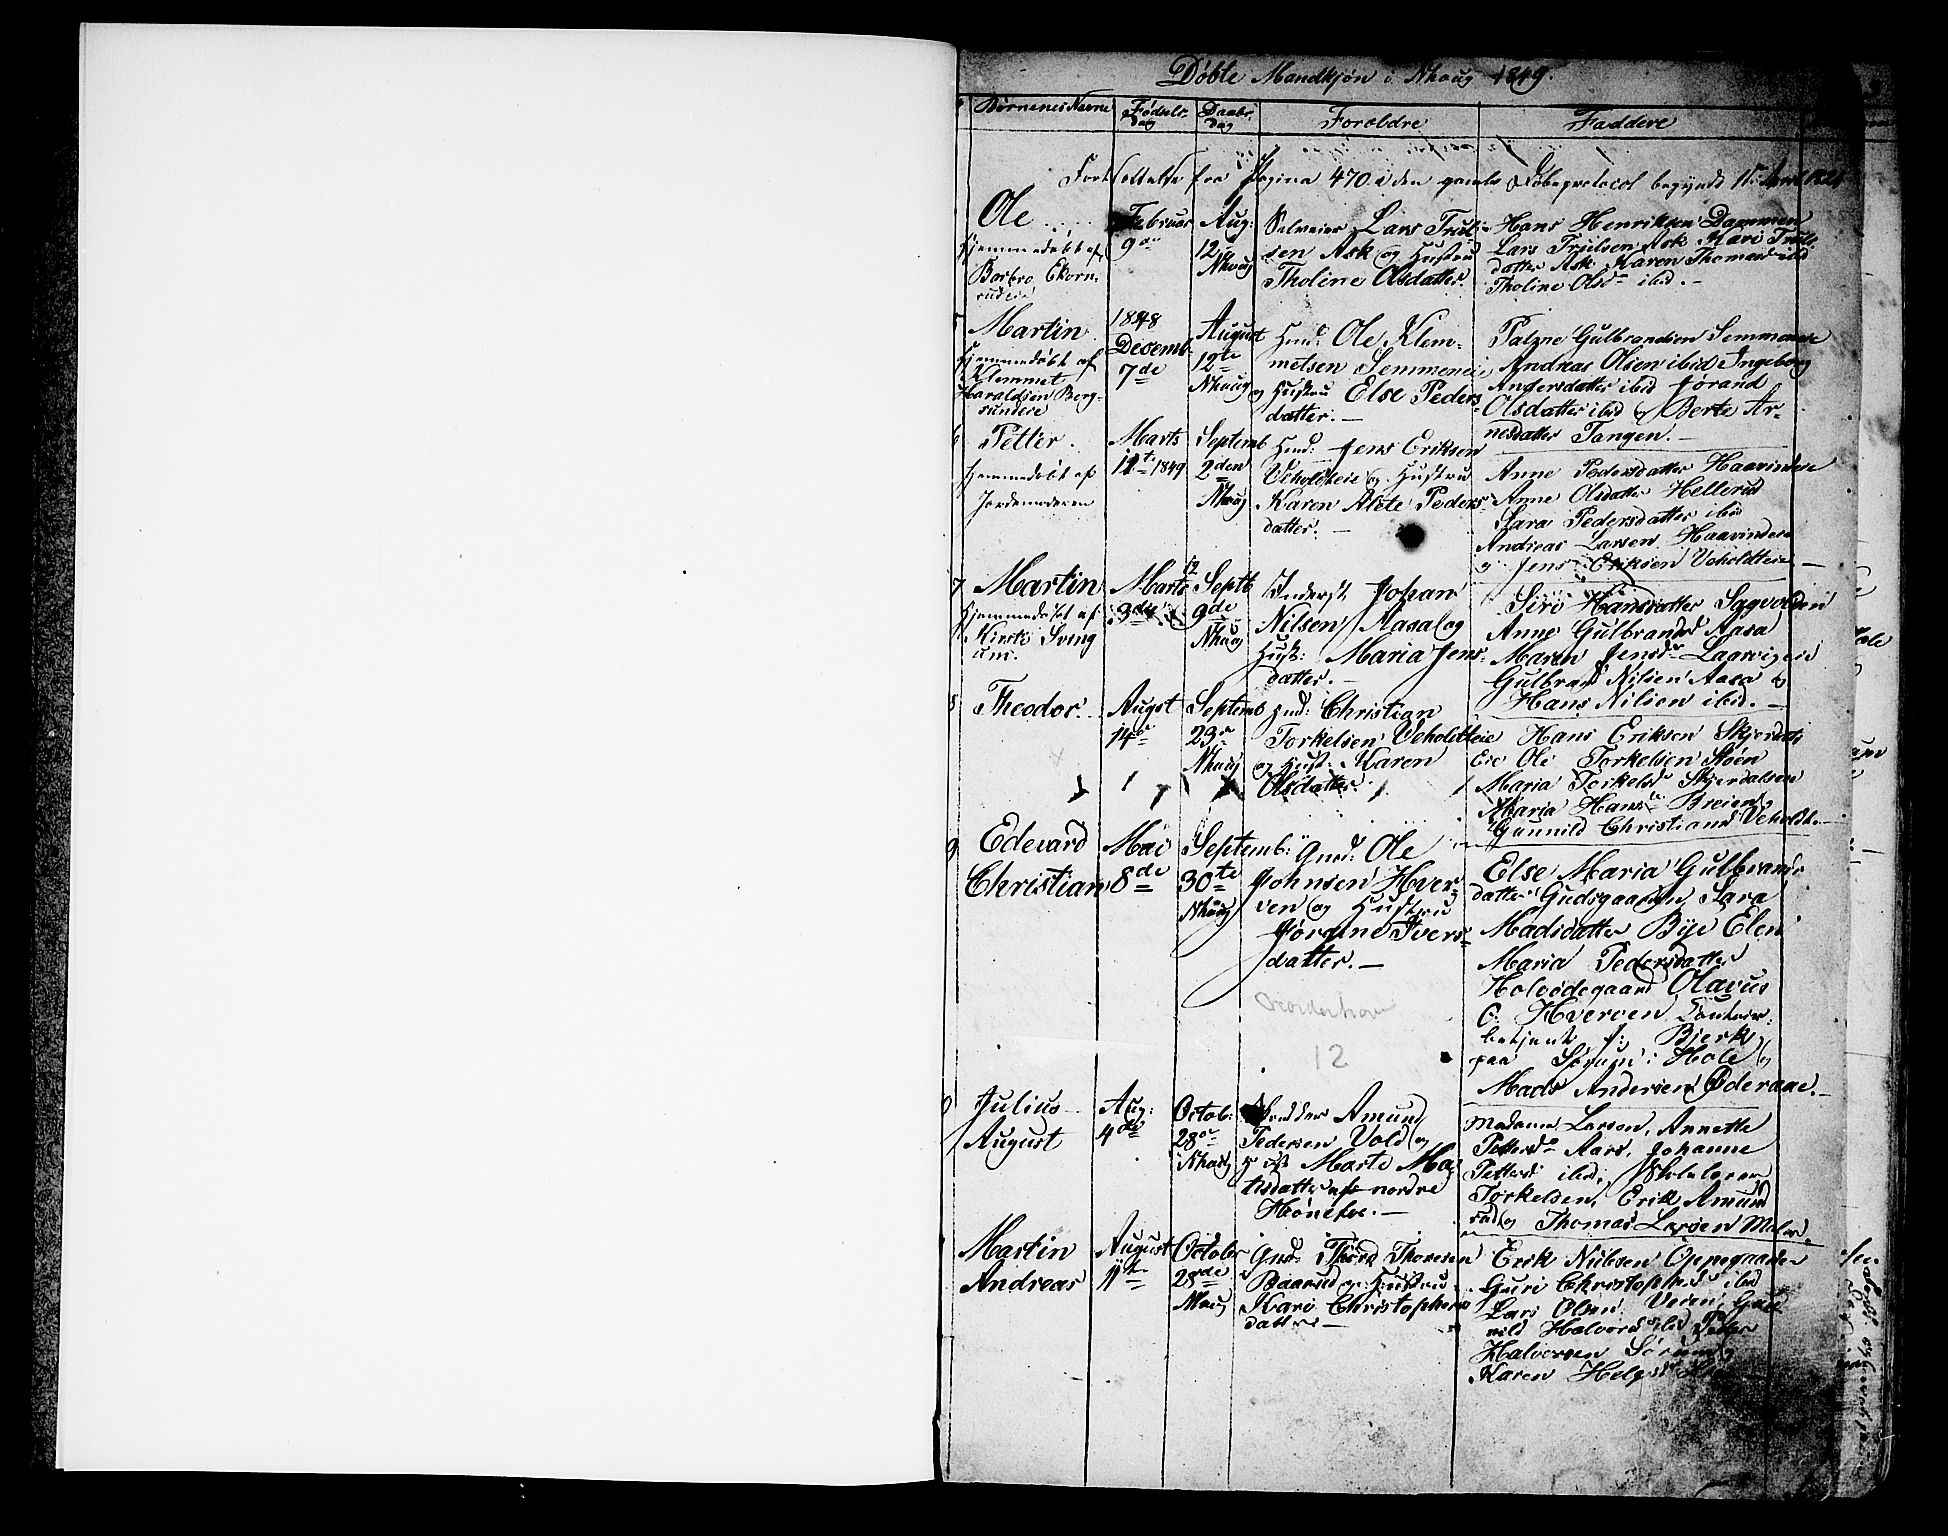 Døbte Mandkjøn i Nhoug 1849.
Børnenes Navne Fødsels- dag Daabs- dag Forældre Faddere
Fortsættelse fra Pagina 470 i den gamle Døbeprotocol begyndt
Ole
hjemmedøbt af
Barbro Ekorn-
rudeie
Februar
9de
Aug:
12te
Nhoug
Selveier Lars Trul-
sen Ask og Hustru
Tholine Olsdatter.
Hans Henriksen Dammen
Lars Trulsen Ask Kari Truls-
datter Ask Karen Thomasd ibid
Tholine Olsd ibid. –
5 Martin
Hjemmedøbt af
Klemmet
Haraldsen Berg-
sundeie
1848
Decemb
7de
August
12te
Nhoug
Huusm: Ole Klem-
metsen Semmeneie
og Hustru Else Peders-
datter. –
Gulbrandsen Semmeneie
Andreas Olsen ibid Ingeborg
Andersdatter ibid Jorand
Olsdatter ibid og Berte Ar-
nesdatter Tangen. –
6 Petter.
Hjemmedøbt af
Jordemoderen
Marts
12te 1849
Septemb
2den
Nhoug
Huusm: Jens Eriksen
Veholdteie og Hustru
Karen Alete Peders-
datter. –
Anne Pedersdatter Haavindeie
Anne Olsdatter Hellerud
Sara Pedersdatter ibid
Andreas Larsen Haavindeie
og Jens Eriksen Veholdteie –
7 Martin
Hjemmedøbt af
Kirsti Sving-
um.
Marts
Septb
9de
Nhoug
Inderst Johan
Nilsen Aasa og
Hust: Maria Jens-
datter. –
Siri Hansdatter Sagvolden
Anne Gulbrandsd Aasa
Maren Jensdr Laarvigeie
Gulbrand Nilsen Aasa og
Hans Nilsen ibid. –
8 Theodor
Augst
14de
Septemb
23de
Nhoug
Huusm: Christian
Torkelsen Veholdteie
og Hust: Karen
Olsdatter
Hans Eriksen Skjerdals
Eie Ole Torkelsen Støen
Maria Torkelsdr Skjerdalseie
Maria Hansdr Breien
Gunnild Christiansd Veholdt. –
9 Edevard
Christian
Mai
8de
Septemb:
30te
Nhoug
Gmd: Ole
Johnsen Hver-
ven og Hustru
Jørgine Ivers-
datter. –
Else Maria Gulbrands-
datter Gudsgaarden Sara
Madsdatter Bye Elen
Maria Pedersdatter
Holvødegaard Olavus
O: Hverven Contoir-
betjent f: Bjerke
paa Sørum i Hole og
Mads Andersen Oderaae. –
Norderhov
12
Julius
August
Aug:
4de
Octob:
28de
Nhoug
Amund
Pedersen Vold og
Hust Marte Ma-
tisdatter af nordre
Hønefos. –
Madame Larsen, Annette
Pettersdr Aars, Johanne
Pettersd ibid, Skolelærer
Torkelsen, Erik Amund-
rud og Thomas Larsen
Martin
Andreas
August
11te
Octobr
28de
Nhoug
Gmd: Thord Thoresen
Baarud og Hustru
Kari Christophers-
datter –
Erik Nubsen Oppegaarden
Guri Christophersdr ibid
Lars Olsen Veien, Gun-
nild Halvorsdr ibid Peder
Halvorsen Sørum og
Karen Helgesdr